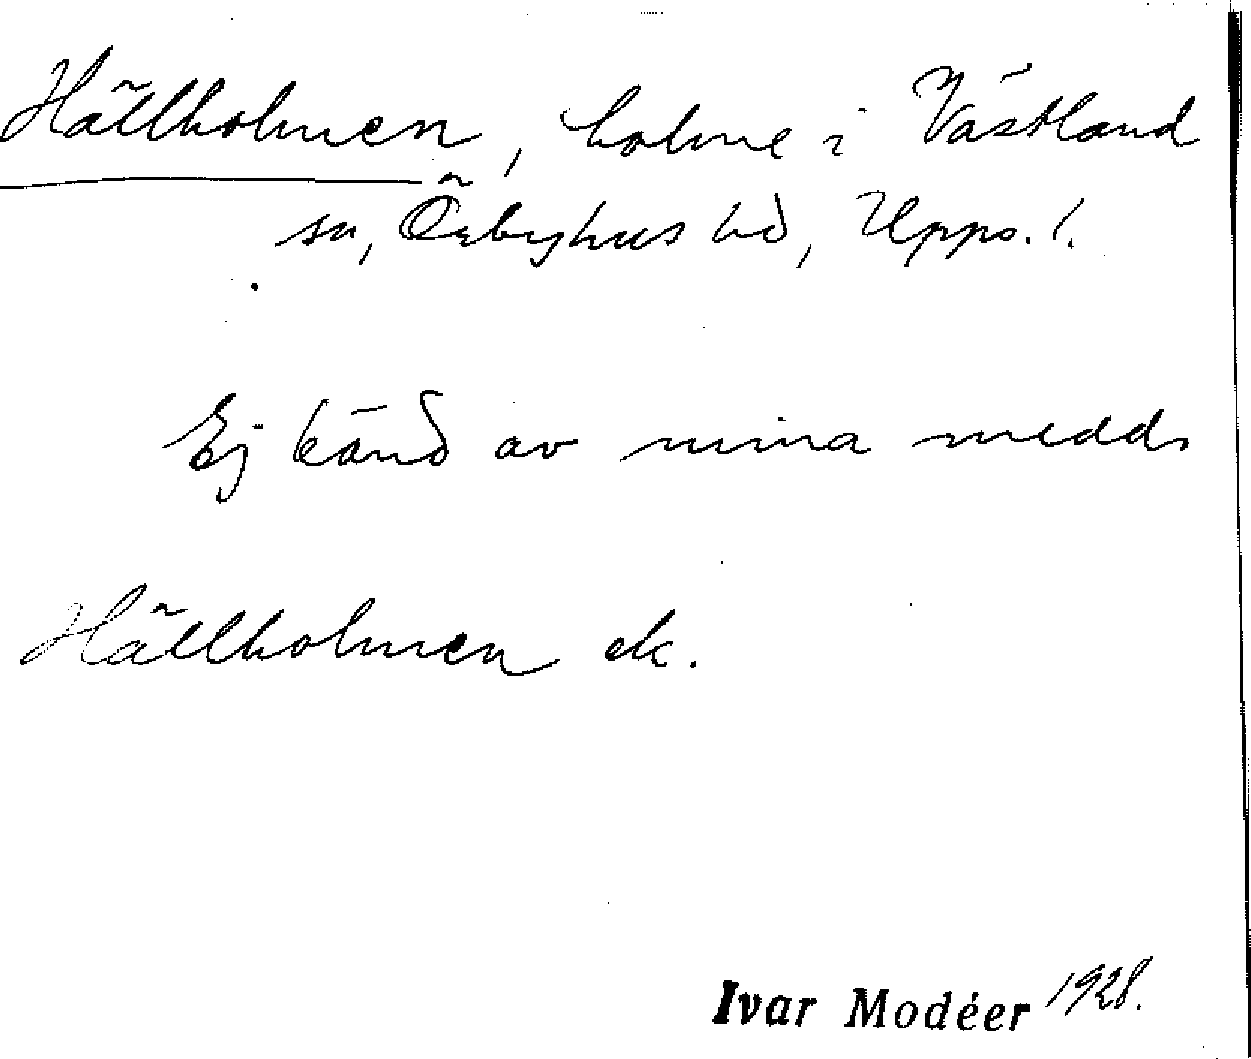 Hällholmen, holme i Västland
sn, Örbyhus hd, Upps. l.
Ej känd av mina medd.
Hällholmen ek.
Ivar Modéer 1928.